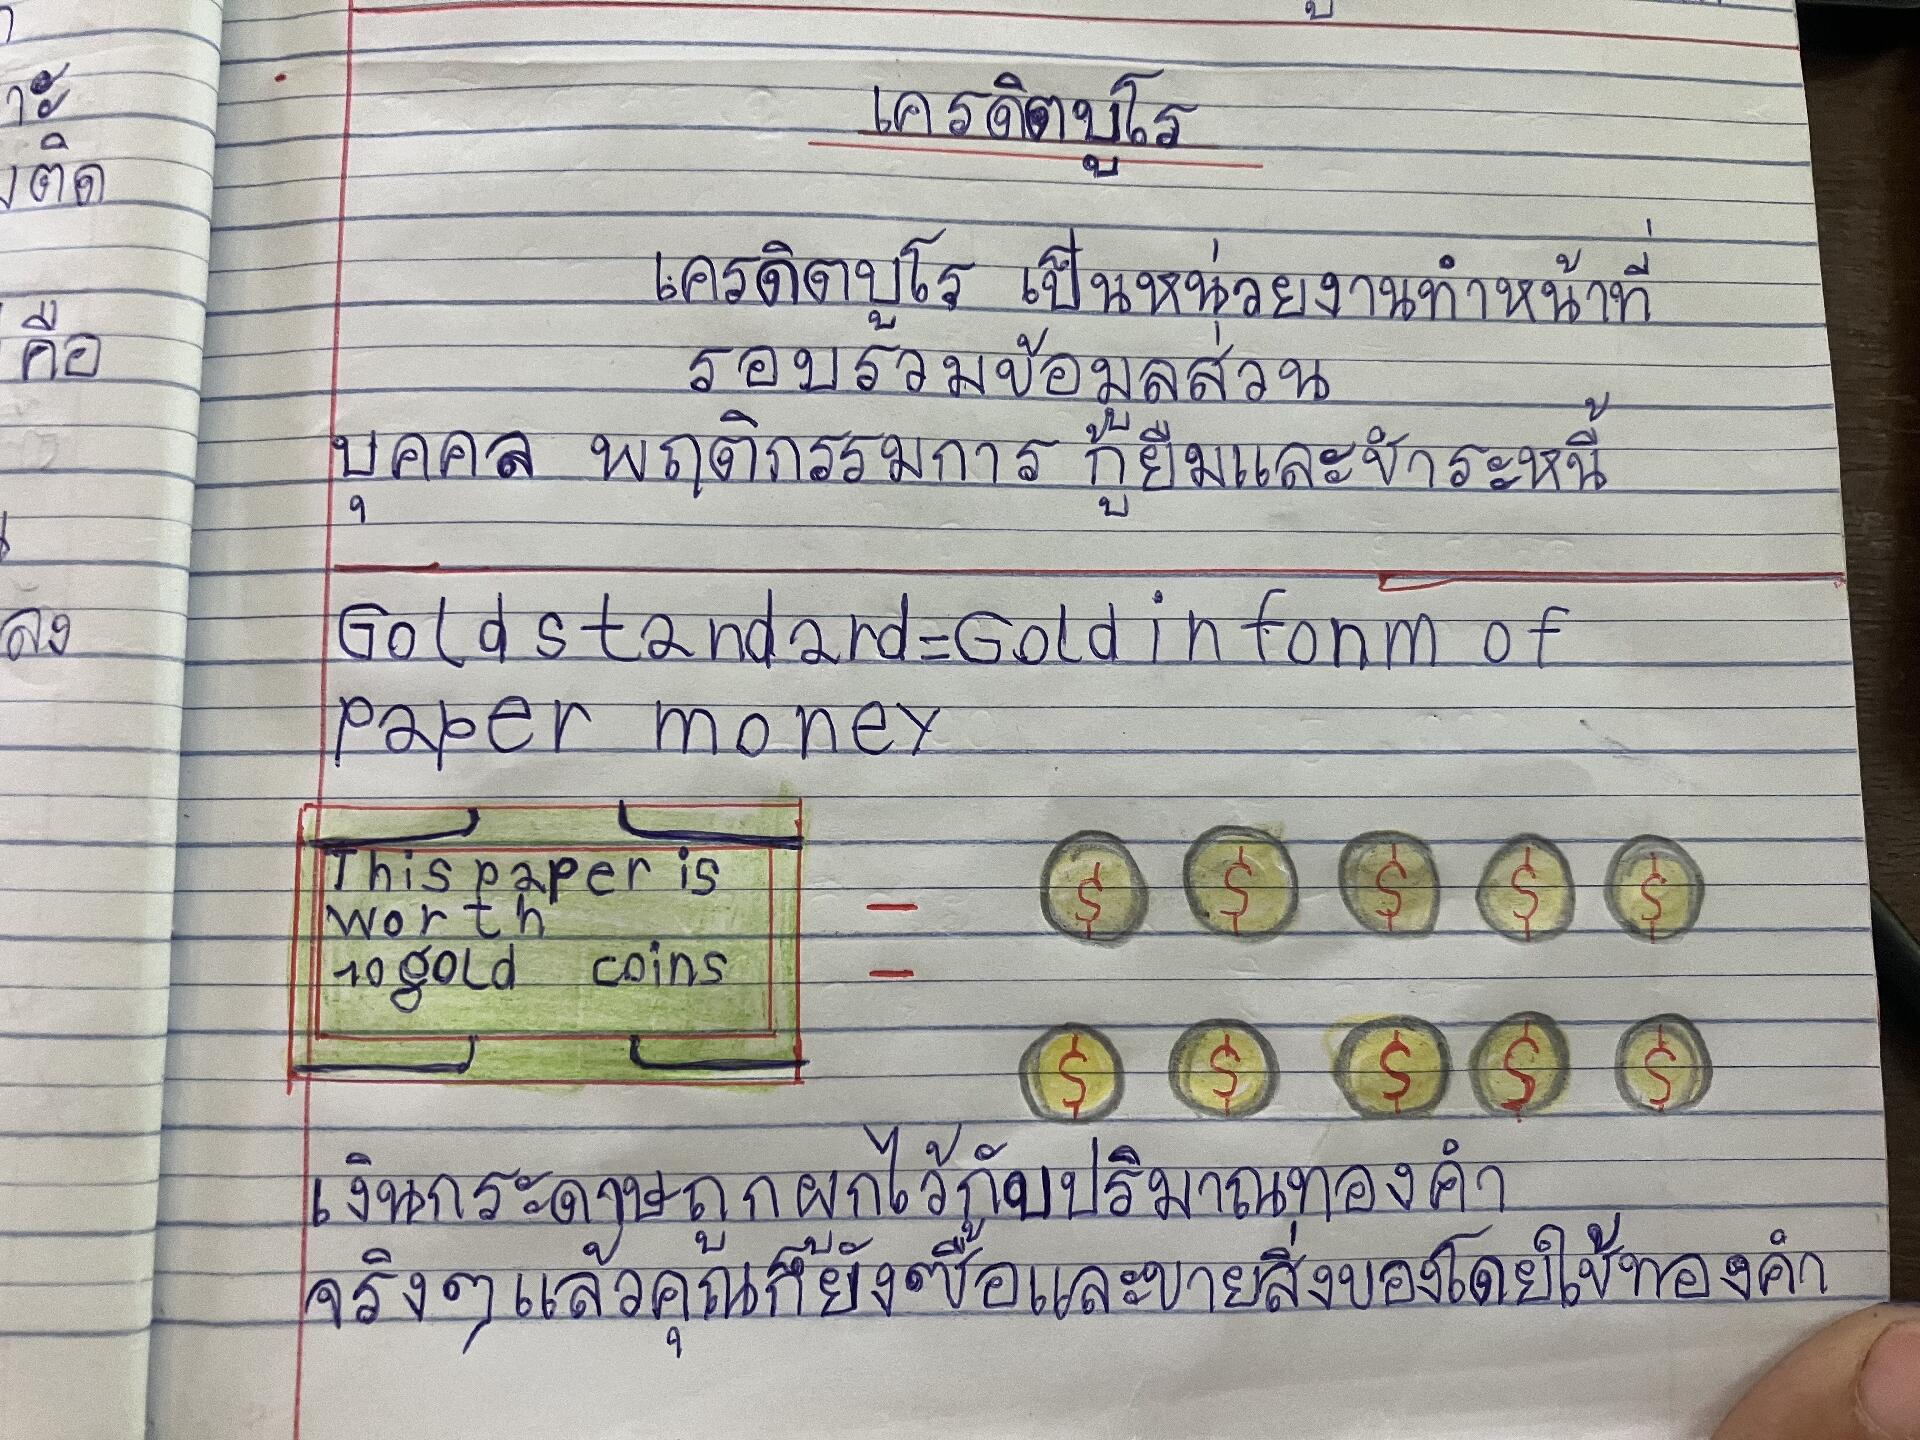 เครดิตบูโร
เครดิตบูโร เป็นหน่วยงานทำหน้าที่
รอบรวมข้อมูลส่วน
บุคคล พฤติกรรมการ กู้ยืมและชำระหนี้
Gold standard=Gold in fonm of
paper money
This paper is
worth
10 gold coins
$ $ $ $ $
$ $ $ $ $
เงินกระดาษถูกผูกไว้กับปริมาณทองคำ
จริงๆแล้วคุณก็ยังซื้อและขายสิ่งของโดยใช้ทองคำ
าะ
งติด
คือ
ลง